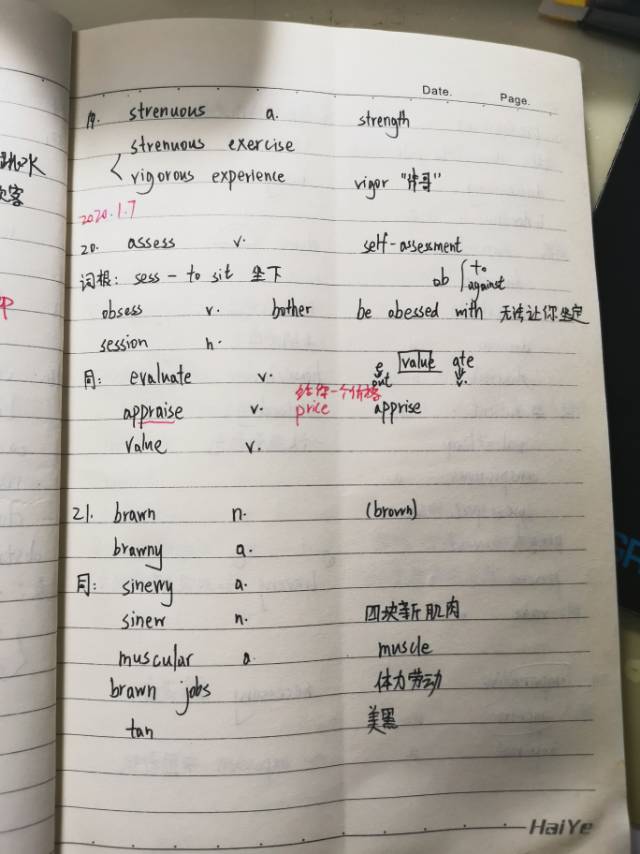 Date. Page.
19. strenuous a. strength
strenuous exercise
vigorous experience vigor "伟哥"
2020.1.7
20. assess v. self-assessment
词根: sess - to sit 坐下 ob to
against
obsess v. bother be abessed with 无法让你坐定
session n.
同: evaluate v. e value ate
out v.
给你一个价格
appraise v. price apprise
value v.
21. brawn n. (brown)
brawny a.
同: sinewy a.
sinew n. 四块新肌肉
muscular a. muscle
brawn jobs 体力劳动
tan 美黑
HaiYe